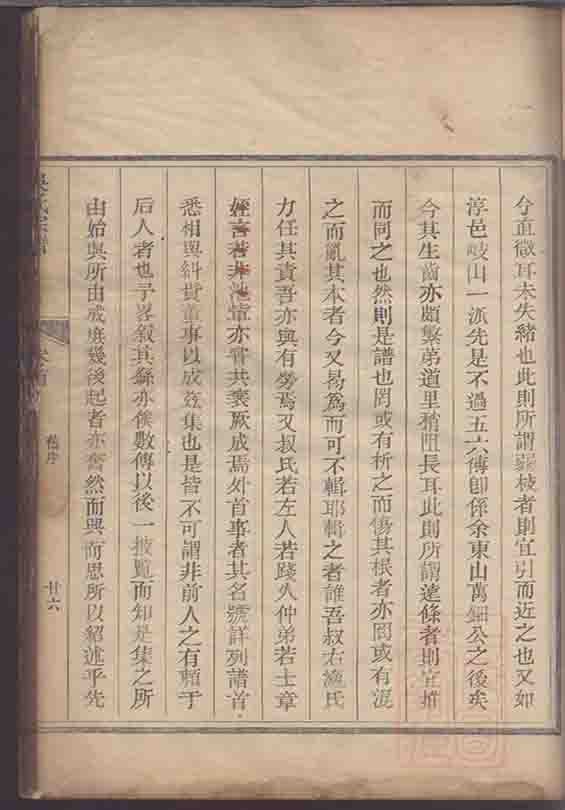 分直微耳未失緒也此則所謂弱枝者則宜引而近之也又如
淳邑岐山一派先是不過五六傳卽係余東山萬鈿公之後矣
今其生齒亦頗繁弟道里稍阻長耳此則所謂遠條者則宜推
而同之也然則是譜也罔或有析之而傷其根者亦罔或有混
之而亂其本者今又曷爲而可不輯耶輯之者誰吾叔右漁氏
力任其責吾亦與有勞焉又叔氏若左人若踐八仲弟若士章
姪言若非池輩亦嘗共襄厥成焉外首事者其名號詳列譜首
悉相與糾貲董事以成玆集也是皆不可謂非前人之有賴于
后人者也予畧叙其緜亦俟數傳以後一披覽而知是集之所
由始與所由成庶幾後起者亦奮然而興而思所以紹述乎先
氏宗譜
卷首
舊序
廿六